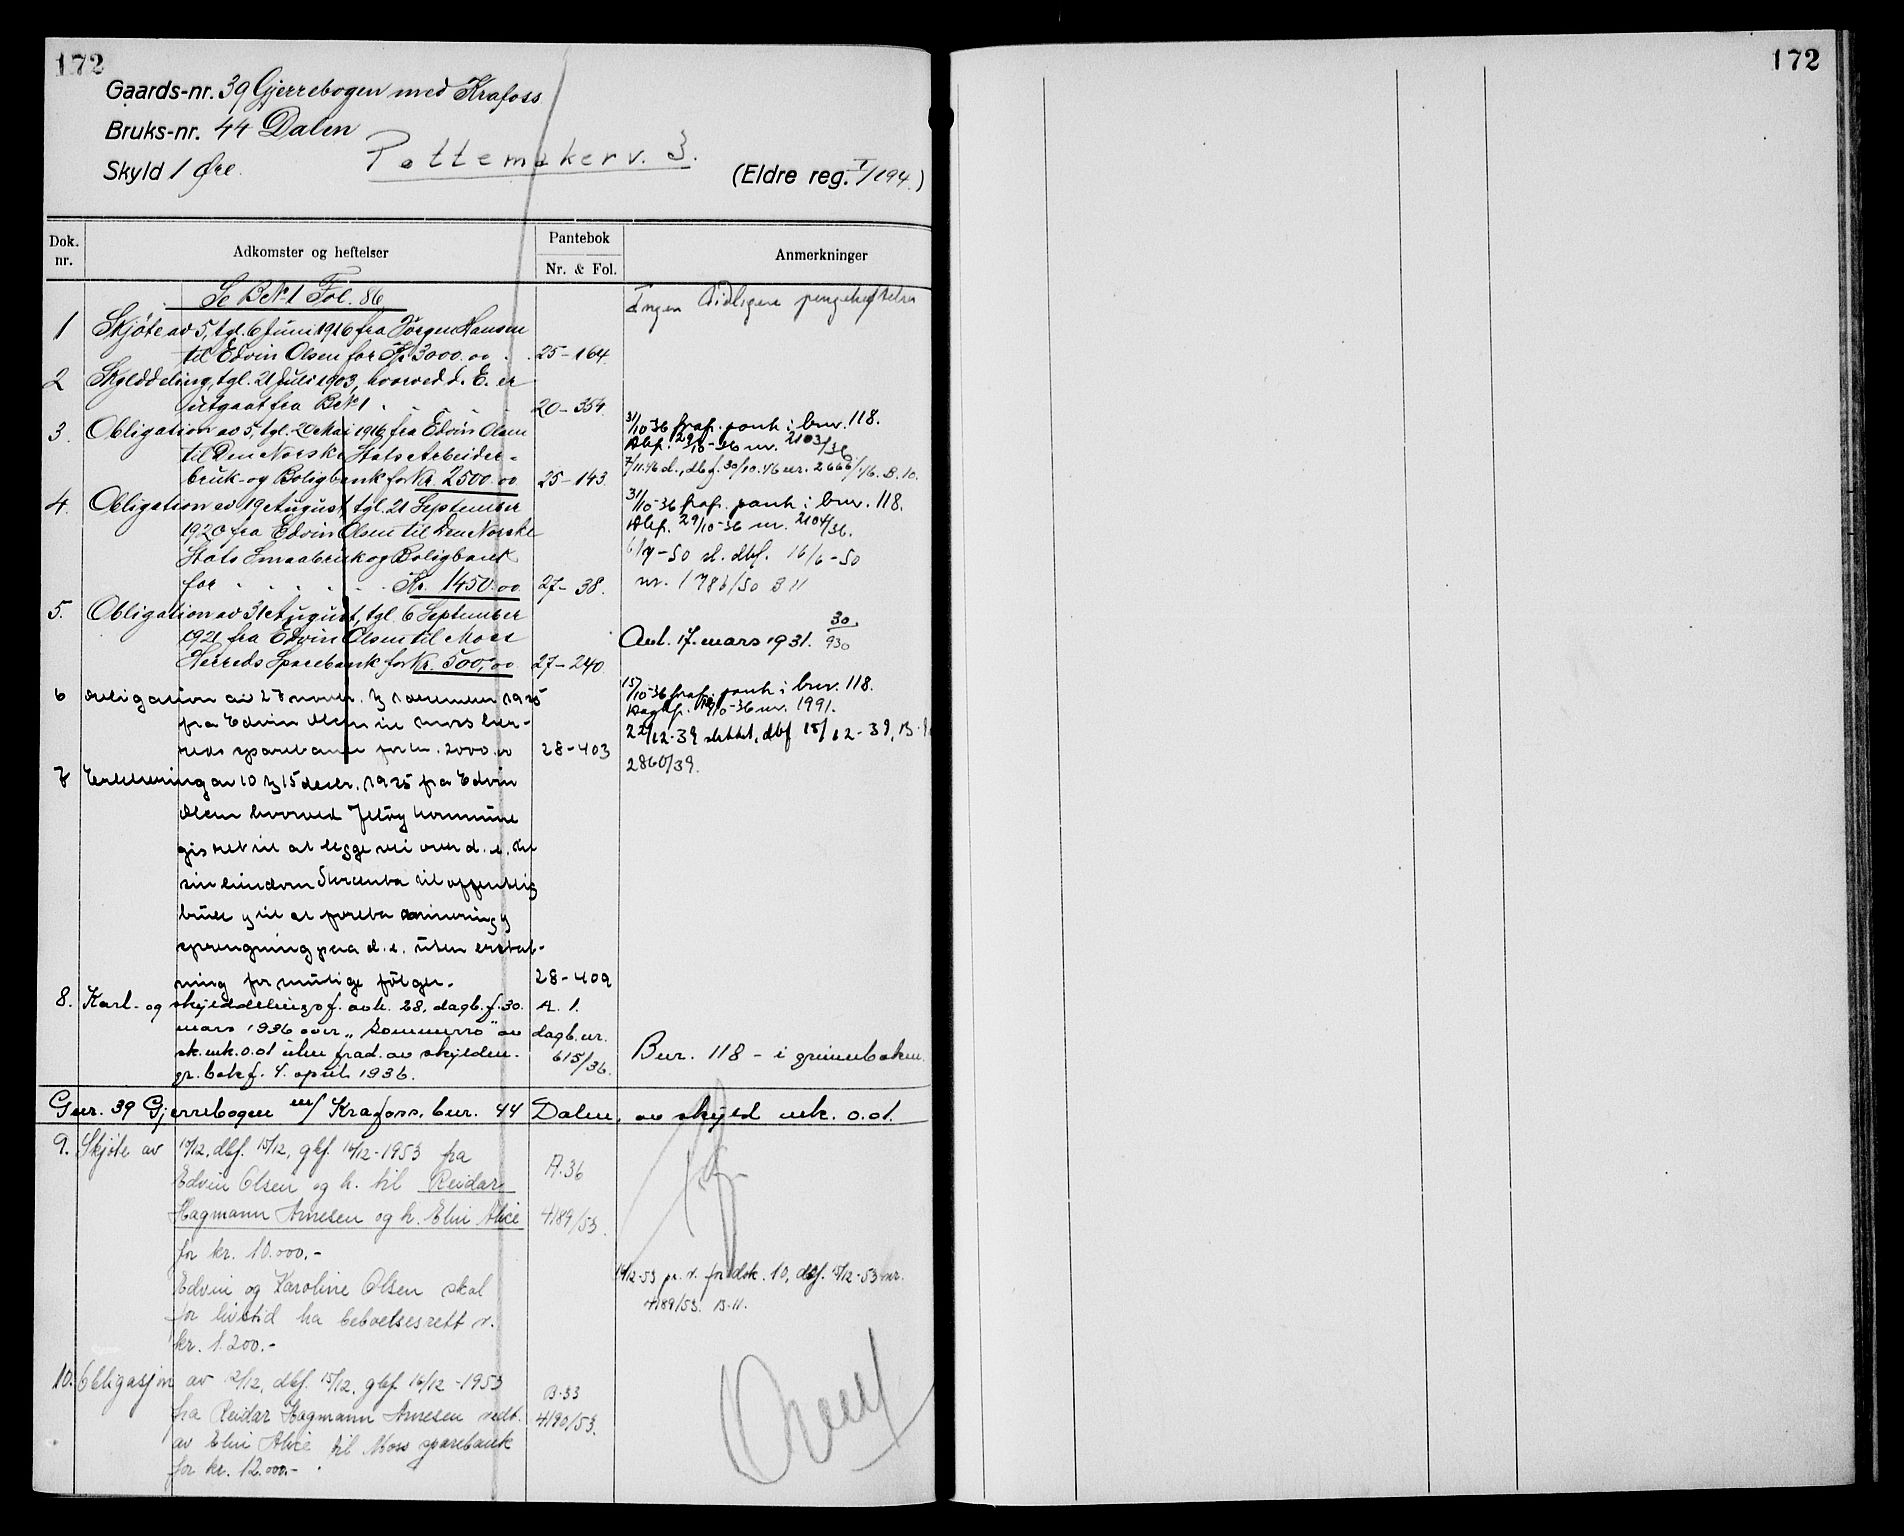 172
172
Gaards-nr. 39 Gjerrebogen med Krafoss
Bruks-nr. 44 Dalen
Skyld 1 Øre.
Pottemakerv. 3.
(Eldre reg. I/194.)
Dok. nr.
Adkomster og heftelser
Pantebok
Nr. & Fol.
Anmerkninger
Se BNo 1 Fol. 86
Ingen tidligere pengeheftelser
1 Skjøte av 5, tgl. 6 Juni 1916 fra Jørgen Hansen
til Edvin Olsen for Kr 3000.00 . . 25-164.
2 Skylddeling, tgl. 21 Juli 1903, hvorved d. E. er
utgaat fra BNo 1 . . . . 20-354
3. Obligation av 5, tgl. 20 Mai 1916 fra Edvin Olsen
til Den Norske Stats Arbeider-
bruk- og Boligbank for Kr. 2500.00 25-143.
31/10-36 fraf. pant i bnr. 118.
Abf. 29/10-36 nr. 2103/36
7/11.46 d., dbf. 30/10.46 nr. 2666/46. B.10.
4. Obligation av 19 August, tgl. 21 September
1920 fra Edvin Olsen til Den Norske
Stats Smaabruk og Boligbank
for . . . . Kr. 1450.00 27-38.
31/10-36 fraf. pant i bnr. 118.
Abf. 29/10-36 nr. 2104/36.
6/7-50 sl. dbf. 16/6-50
nr. 1786/50 B 11
5. Obligation av 31 August, tgl. 6 September
1921 fra Edvin Olsen til Moss
Herreds Sparebank for Kr. 500,00 27-240.
Avl. 17. mars 1931. 30/930
6 obligation av 27 novbr. tgl desember 1925
fra Edvin Olsen til Moss her-
reds sparebank for kr. 2000.00 28-403
15/10-36 fraf. pant i bnr. 118.
Dagbf. 10-36 nr. 1991.
22/12-39 slettet, dbf 15/12-39, B.
2860/39.
7 Erklæring av 10 tgl 15 decbr. 1925 fra Edvin
Olsen hvorved Jeløy kommune
gis ret til at legge vei over d. e. fra
eiendom til offentlig
bruk og til at foreta og
sprengning paa d. e. uten erstat-
ning for mulige følger. 28-409
8. Kart- og skylddelingsf. avh. 28, dagb.f. 30. A. 1.
mars 1936 over „Sommerro“ av dagb.nr.
sk. mk. 0.01 uten frad. av skylden. 615/36.
gr. bok f. 4. april 1936.
Bnr. 118 - i grunnboken.
Gnr. 39 Gjerrebogen m/ Krafoss, bnr. 44 Dalen, av skyld mk. 0.01.
9. Skjøte av 10/12, dbf. 15/12, gbf. 16/12-1953 fra A.36
Edvin Olsen og h. til Reidar
Hagmann Arnesen og h. Elin Alice 4189/53.
for kr. 10.000.-
Edvin og Karoline Olsen skal
for livstid ha beboelsesrett v.
kr. 1.200.-
14/12-53 pr. v. for dok. 10, dbf. 15/12-53 nr.
4189/53. B.11.
10. Obligasjon av 2/12, dbf. 15/12, gbf. 16/12-1953 B.33
fra Reidar Hagmann Arnesen vedt. 4190/53.
av Elin Alice til Moss sparebank
for kr. 12.000.-